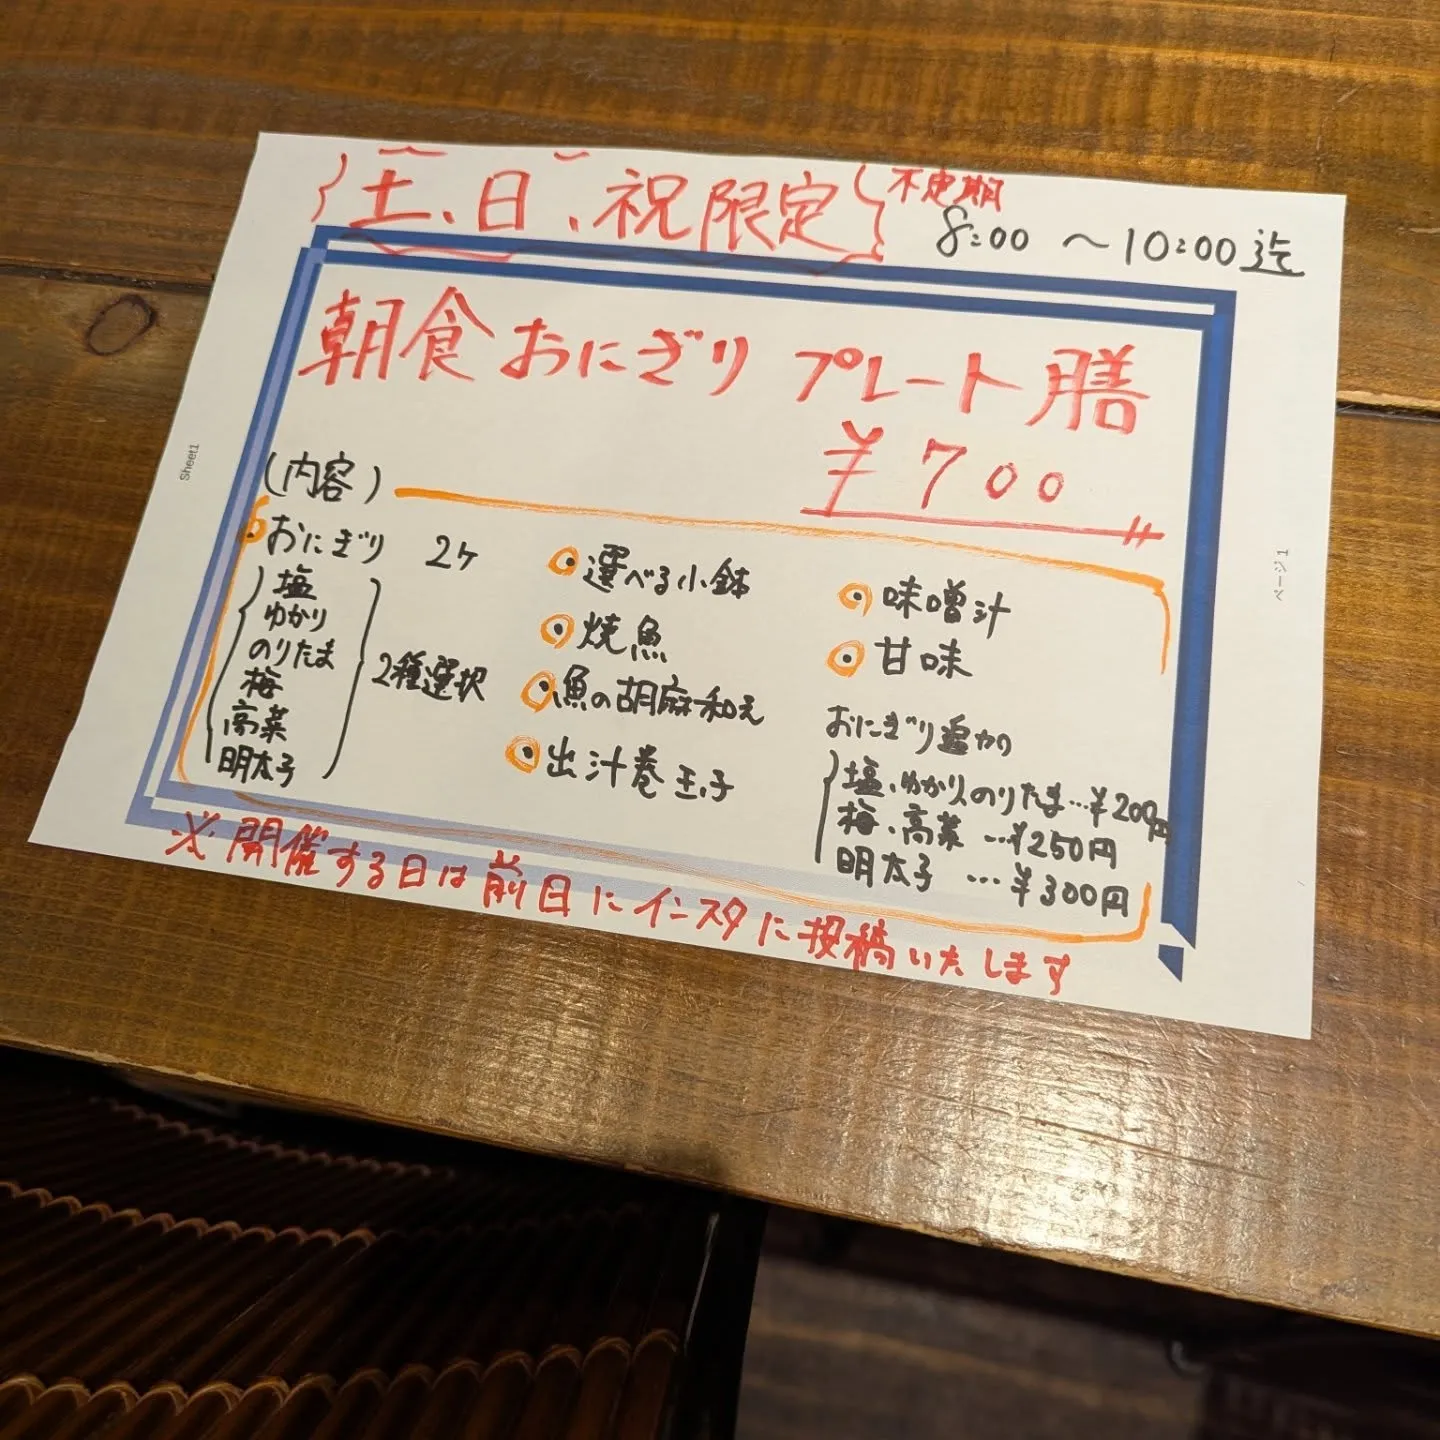 土、日、祝限定 不定期
8:00 〜10:00迄
朝食おにぎりプレート膳
¥700
(内容)
おにぎり 2ヶ
塩
ゆかり
のりたま
梅
高菜
明太子
2種選択
選べる小鉢
焼魚
魚の胡麻和え
出汁巻玉子
味噌汁
甘味
おにぎり追加
塩、ゆかり、のりたま…¥200円
梅、高菜 …¥250円
明太子 …¥300円
※開催する日は前日にインスタに投稿いたします
Sheet1
ページ 1